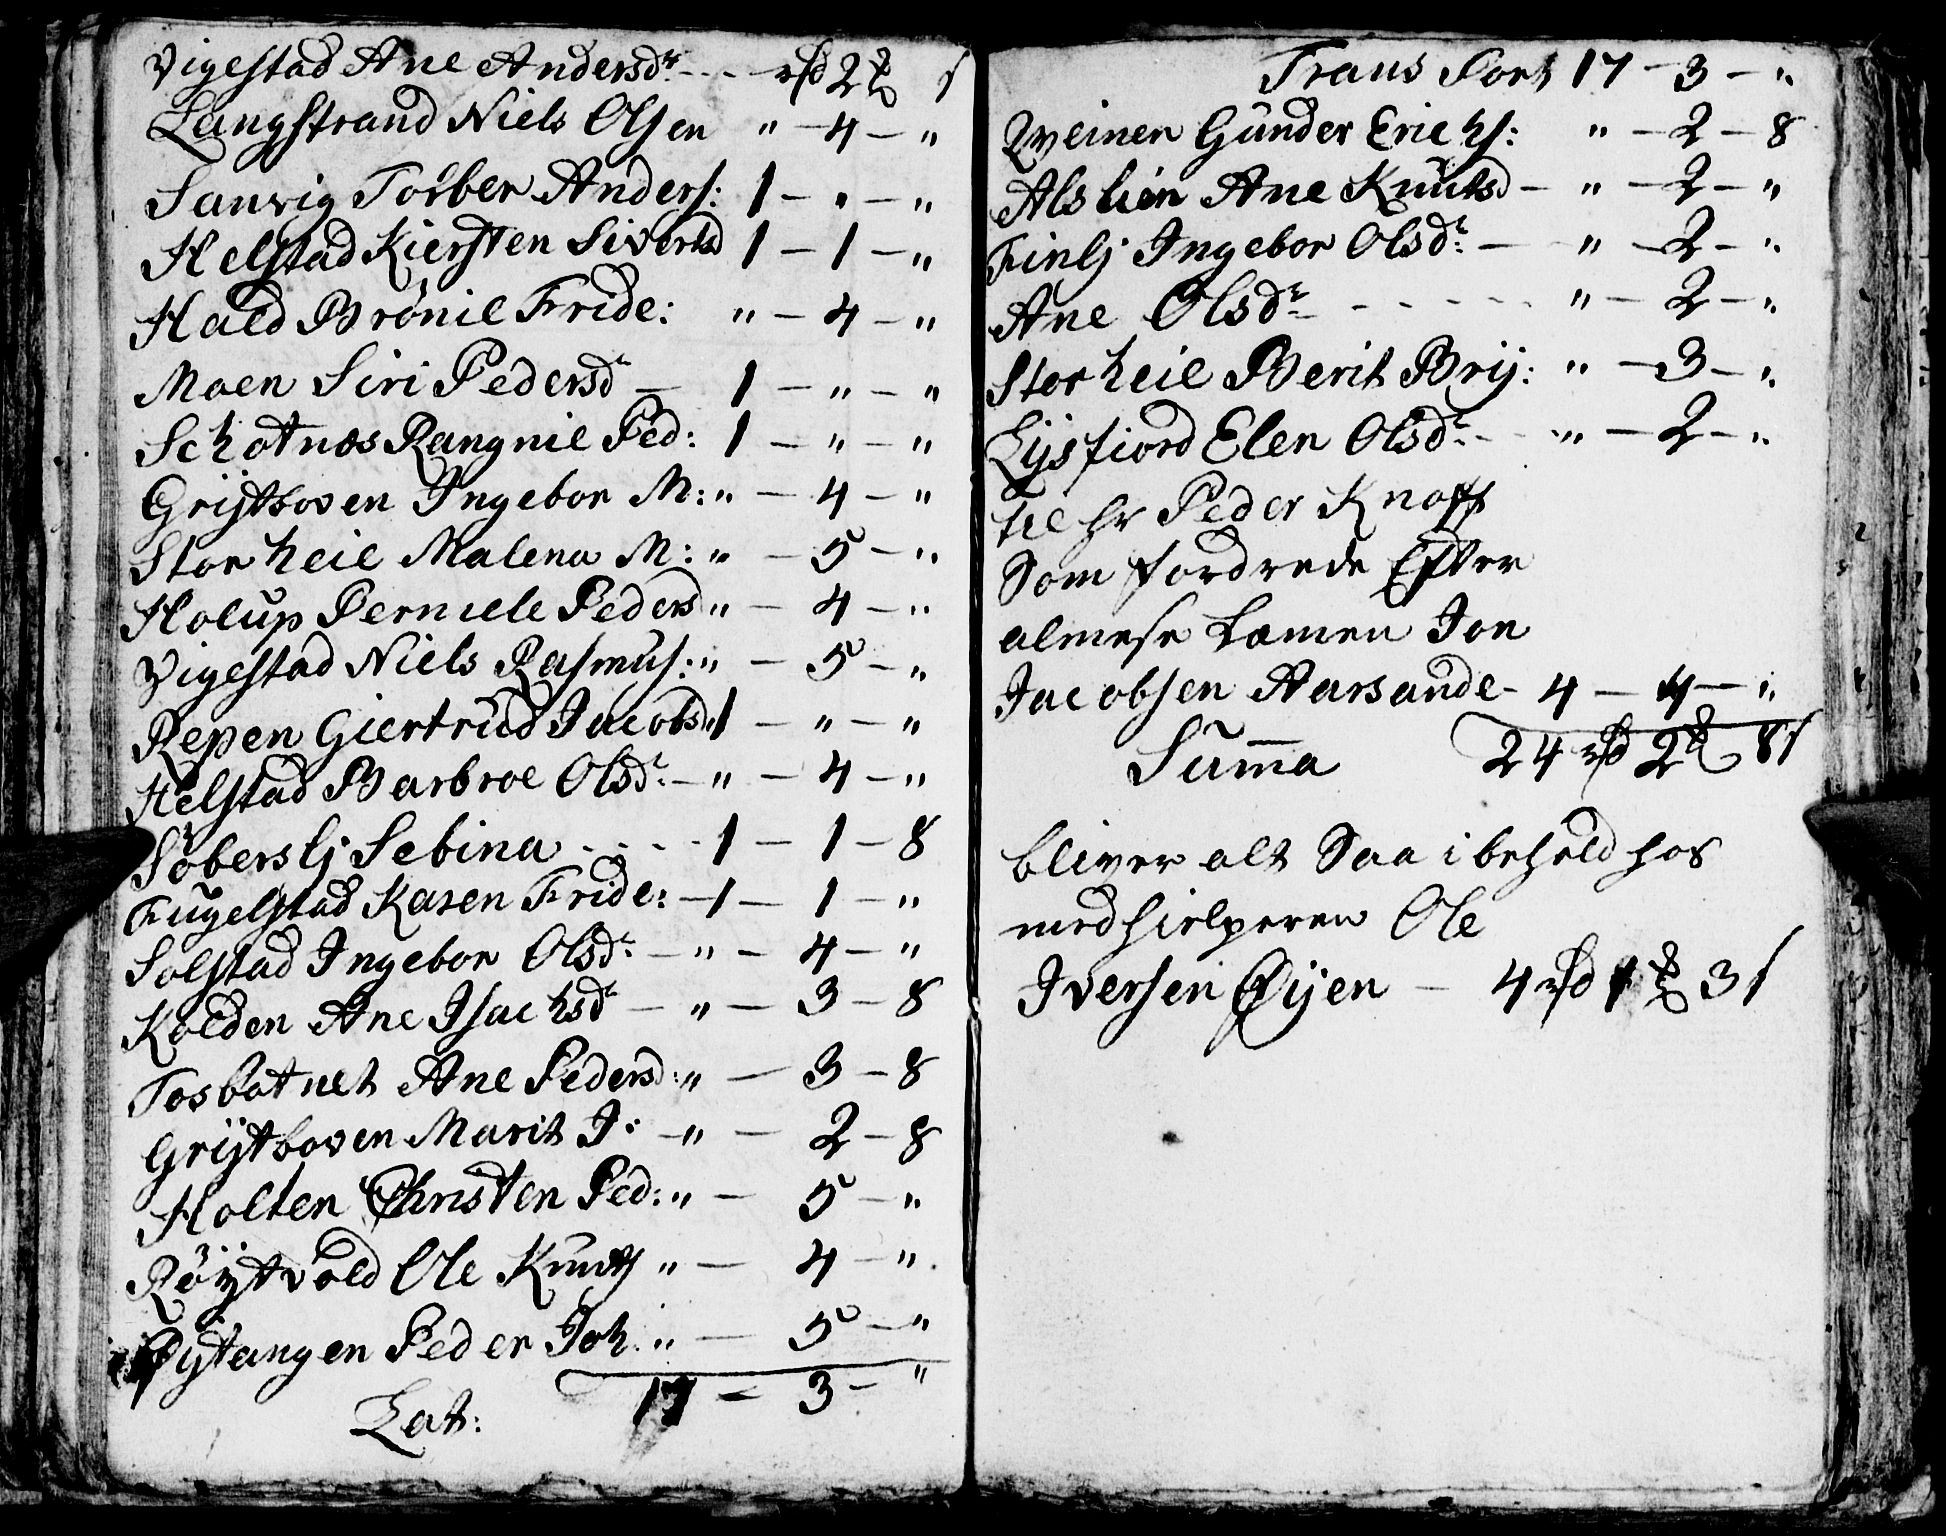 Vigestad Ane Andersdr. - - - rd 2 ℔ s
Langstrand Niels Olsen " - 4 - "
Sanvig Torber Anders: 1 - " - "
Helstad Kiersten Siverts 1 - 1 - "
Hald Brönil Fride: " - 4 - "
Moen Siri Pedersd - 1 - " - "
Schotnæs Rangnil Ped: 1 - " - "
Grytboven Ingebor M: " - 4 - "
Storheil Malena M: " - 5 - "
Holup Pernille Peders " - 4 - "
Vigestad Niels Rasmus: " - 5 - "
Repen Giertrud Jacobsd 1 - " - "
Helstad Barbroe Olsdr - " - 4 - "
Söberslj Sebina - - - - 1 - 1 - 8
Fugelstad Karen Fride: - 1 - 1 - "
Solstad Ingebor Olsdr - " - 4 - "
Kolden Ane Isachsdr - " - 3 - 8
Tosbotnet Ane Pedersd: " - 3 - 8
Grytboven Marit J: - " - 2 - 8
Holten Christen Ped: " - 5 - "
Röytvold Ole Knuds " - 4 - "
Øytangen Peder Joh: " - 5 - "
Lat: 17 - 3 - "
Trans Port 17 - 3 - "
Qveinen Gunder Erichs: " - 2 - 8
Alslien Ane Knutsd - " - 2 - "
Finlj Ingebor Olsdr - " - 2 - "
Ane Olsdr - - - - - " - 2 - "
Storheil Berit Bry: " - 3 - "
Lysfiord Elen Olsdr - - " - 2 - "
til hr Peder Knoff
Som fordrede Efter
almese Læmen Jon
Jacobsen Aarsande - 4 - 4 - "
Summa 24 rd 2 ℔ 8 s
bliver alt Saa i behold hos
medhielperen Ole
Iversen Øyen - 4 rd 1 ℔ 3 s